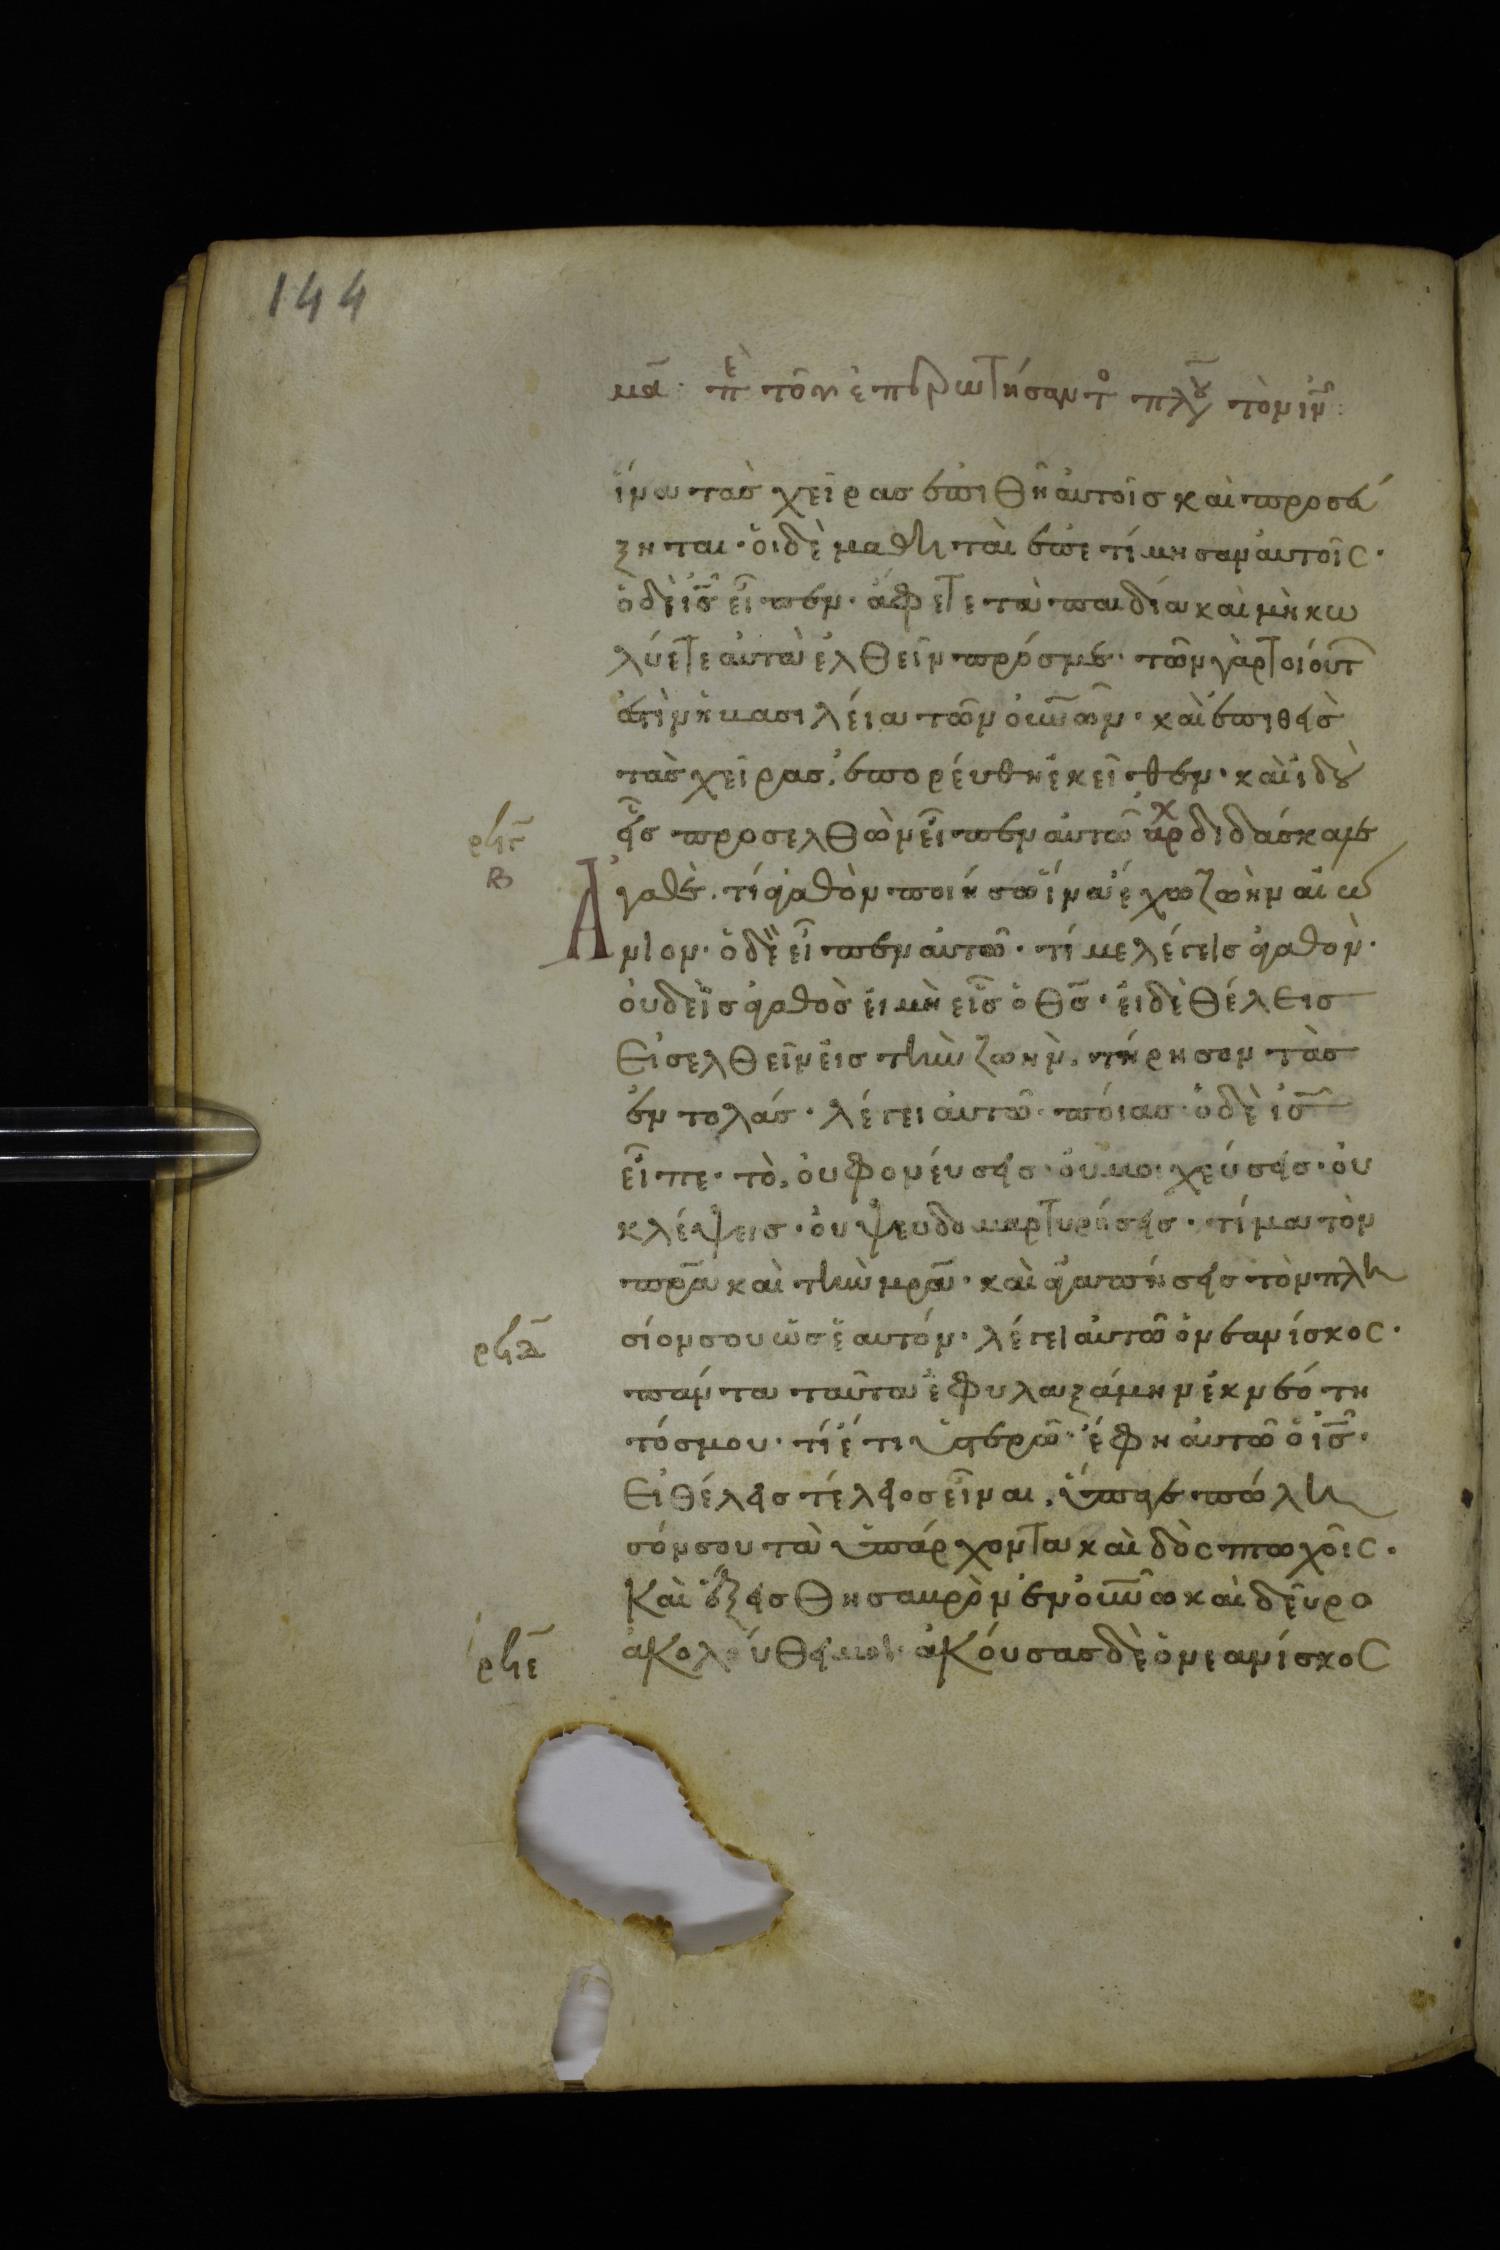 144
μα̅ πὲ τοῦ ἐπερωτήσαντο πλου τὸν ιν̅:
ἵνα τὰς χεῖρας ἐπιθῆ αὐτοῖς καὶ προσεύ
ξηται· ὁι δὲ μαθηταὶ ἐπετίμησαν αὐτοῖς·
ὁ δὲ ις̅ εἶπεν· ἄφετε τὰ παιδία καὶ μὴ κω
λύετε αὐτὰ ἐλθεῖν πρός με· τῶν γὰρ τοιούτ
ἐστὶν ἡ βασιλεία τῶν οὐν̅ων· καὶ ἐπιθεὶς
τὰς χεῖρας, ἐπορεύθη ἐκεῖθεν· καὶ ἰδοὺ
εἷς προσελθὼν εἶπεν αὐτῶ αρχ διδάσκαλε
ρϟγ̅
β
Ἀγαθὲ· τί ἀγαθὸν ποιήσω ἵνα ἔχω ζωὴν αἰώ
νιον· ὁ δὲ εἶπεν αὐτῶ· τί με λέγεις ἀγαθὸν·
οὐδεὶς ἀγαθὸς εἰ μὴ εἷς ὁ θς̅· εἰ δὲ θέλεις
εἰσελθεῖν εἰς τὴν ζωὴν, τήρησον τὰς
ἐντολάς· λέγει αὐτῶ· ποίας· ὁ δὲ ις̅
εἶπε· τὸ, οὐ φονεύσεις· οὐ μοιχεύσεις· οὐ
κλέψεις· οὐ ψευδομαρτυρήσεις· τίμα τὸν
πρα̅ καὶ τὴν μρα̅· καὶ ἀγαπήσεις τὸν πλη
ρϟδ̅
σίον σου ὡς ἑαυτόν· λέγει αὐτῶ ὁ νεανίσκος·
πάντα ταῦτα ἐφυλαξάμην ἐκ νεότη
τός μου· τί ἔτι ὑστερῶ· ἔφη αὐτῶ ὁ ις̅·
εἰ θέλεις τέλειος εἶναι, ὕπαγε πώλη
σόν σου τὰ ὑπάρχοντα καὶ δὸς πτωχοῖς·
καὶ ἕξεις θησαυρὸν ἐν οὐν̅ω καὶ δεῦρο
ρϟε̅
ἀκολούθει μοι· ἀκούσας δὲ ὁ νεανίσκος